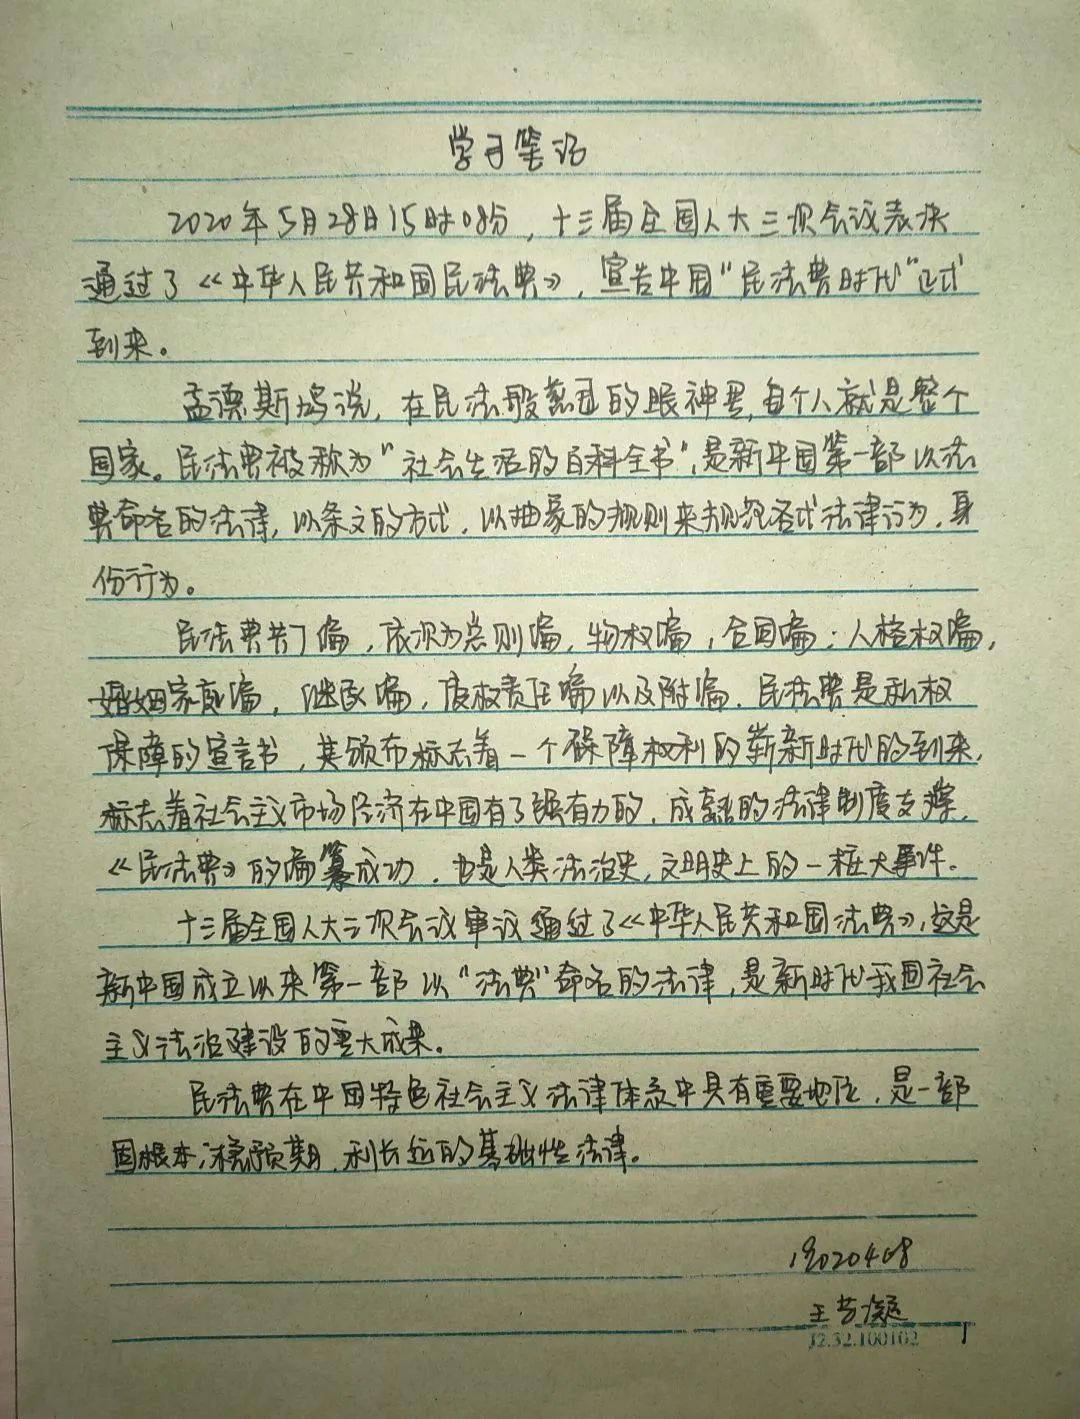 学习笔记
2020年5月28日15时08分，十三届全国人大三次会议表决
通过了《中华人民共和国民法典》，宣告中国“民法典时代”正式
到来。
孟德斯鸠说，在民法般慈母的眼神里，每个人就是整个
国家。民法典被称为“社会生活的百科全书”，是新中国第一部以法
典命名的法律，以条文的方式，以抽象的规则来规范各式法律行为，身
份行为。
民法典共7编，依次为总则编，物权编，合同编；人格权编，
婚姻家庭编，继承编，侵权责任编以及附编．民法典是私权
保障的宣言书，其颁布标志着一个保障权利的崭新时代的到来，
标志着社会主义市场经济在中国有了强有力的，成熟的法律制度支撑，
《民法典》的编纂成功，也是人类法治史，文明史上的一桩大事件．
十三届全国人大三次会议审议通过了《中华人民共和国法典》，这是
新中国成立以来第一部以“法典”命名的法律，是新时代我国社会
主义法治建设的重大成果。
民法典在中国特色社会主义法律体系中具有重要地位，是一部
固根本；稳预期，利长远的基础性法律。
王艺凝
12.32.100102